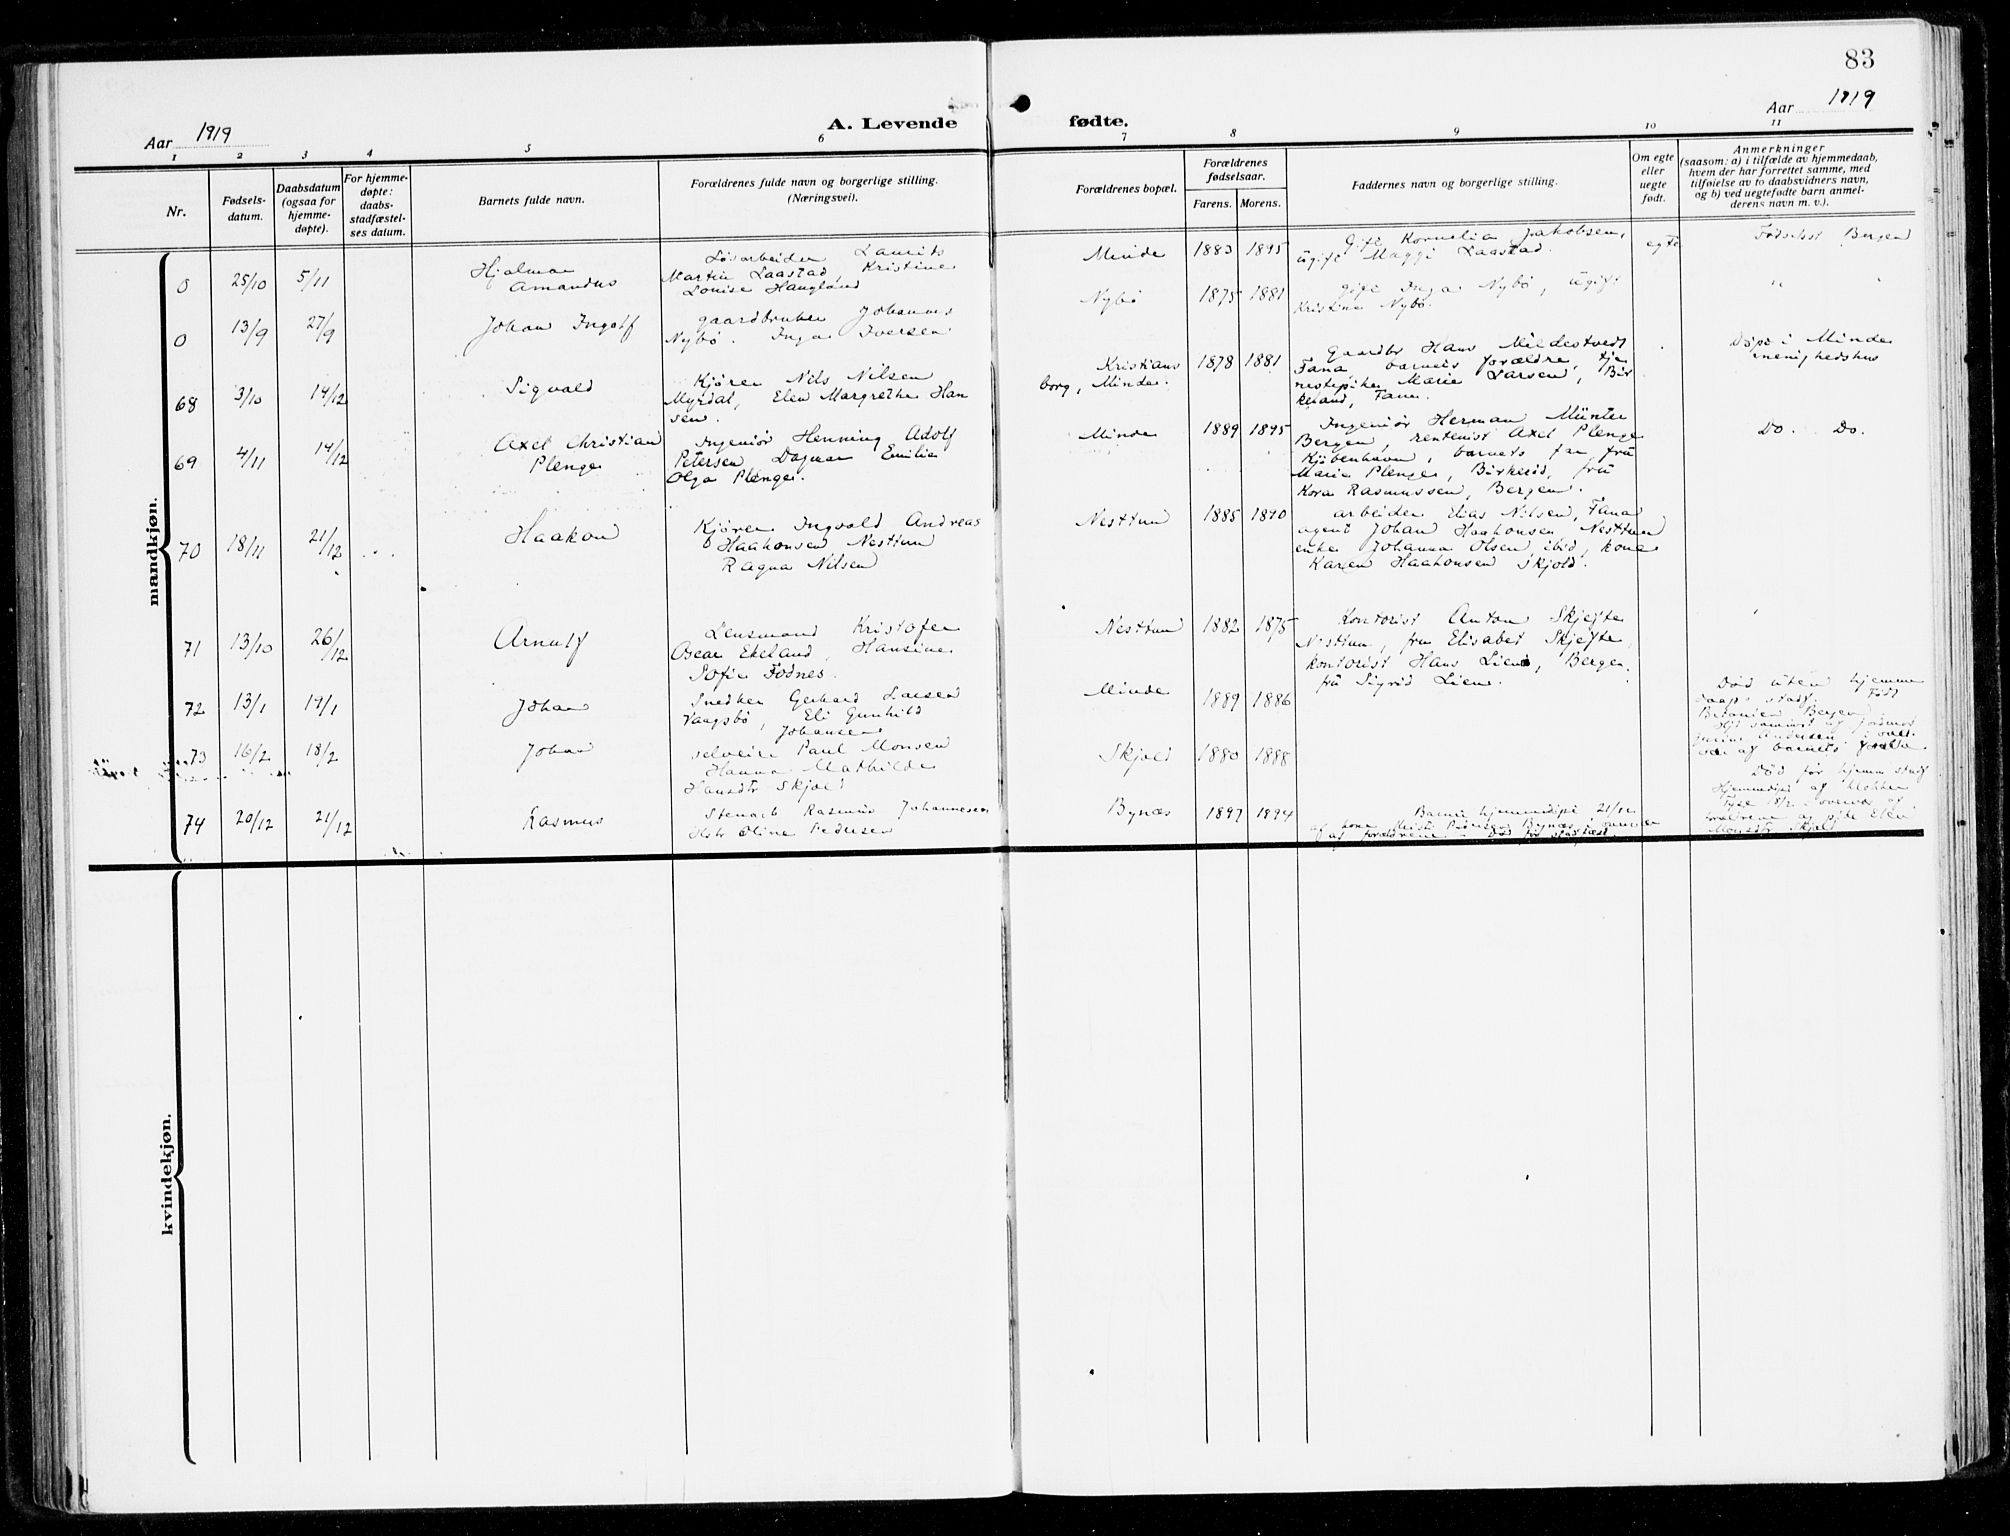 83
Aar 1919
A. Levende fødte.
Aar 1919
1 2 3 4 5 6 7 8 9 10 11
Nr.
Fødsels-
datum.
Daabsdatum
(ogsaa for
hjemme-
døpte).
For hjemme-
døpte:
daabs-
stadfæstel-
ses datum.
Barnets fulde navn.
Forældrenes fulde navn og borgerlige stilling.
(Næringsvei).
Forældrenes bopæl.
Forældrenes
fødselsaar.
Farens. Morens.
Faddernes navn og borgerlige stilling.
Om egte
eller
uegte
født.
Anmerkninger
(saasom: a) i tilfælde av hjemmedaab,
hvem der har forrettet samme, med
tilføielse av to daabsvidners navn,
og b) ved uegtefødte barn anmel-
derens navn m. v.).
mandkjøn.
0 25/10 5/11
Hjalmar
Amandus
Løsarbeider Laurits
Martin Laastad, Kristine
Louise Haugland
Minde 1883 1895
Gift Kornelia Jakobsen,
ugift Maggi Laastad.
egte
Fødselsst Bergen
0 13/9 27/9
Johan Ingolf
gaardbruker Johannes
Nybø. Inga Iversen
Nybø 1875 1881
gift Inga Nybø, ugift
Kristine Nybø.
"
68 3/10 14/12
Sigvald
Kjører Nils Nilsen
Myrdal, Elen Margrethe Han
sen.
Kristians
borg, Minde.
1878 1881
Gaardbr Hans Mildestvedt
Fana barnets forældre, tje
nestepike Marie Larsen, Bir
keland, Fana.
Døpt i Minde
menighedshus
69 4/11 14/12
Axel Christian
Plenge
Ingeniør Henning Adolf
Petersen Dagmar Emilie
Olga Plenge.
Minde 1889 1895
Ingeniør Herman Münter
Bergen, rentenist Axel Plenge
Kjøbenhavn, barnets far, fru
Marie Plenge, Birkerød, fru
Kora Rasmussen, Bergen.
Do. Do.
70 18/11 21/12
Haakon
Kjører Ingvald Andreas
Haakonsen Nesttun
Ragna Nilsen
Nesttun 1885 1890
arbeider Elias Nilsen, Fana
agent Johan Haakonsen Nesttun
enke Johanna Olsen, ibid, kone
Karen Haakonsen Skjold.
71 13/10 26/12
Arnulf
Lensmand Kristofer
Oscar Ekeland, Hansine
Sofie Fodnes.
Nesttun 1882 1875
Kontorist Anton Skjefte
Nesttun, fru Elisabet Skjefte,
kontorist Hans Lien, Bergen.
fru Sigrid Lien.
72 13/1 14/1
Johan
Snedker Gerhard Larsen
Vaagsbø, Eli Gunhild
Johansen
Minde 1889 1886
Død uten hjemme
daaps stadf. Født
Betanien Bergen.
73 16/2 18/2
Johan
selveier Paul Monsen
Hanna Mathilde
Hansdtr Skjold
Skjold 1880 1888
Død før hjemm stadf
Hjemmedøpt af klokker
74 20/12 21/12
Rasmus
Stenarb Rasmus Johannesen
Oline Pedersen
Bynæs 1897 1894
Barnet hjemmedøpt 21/12
kvindekjøn.